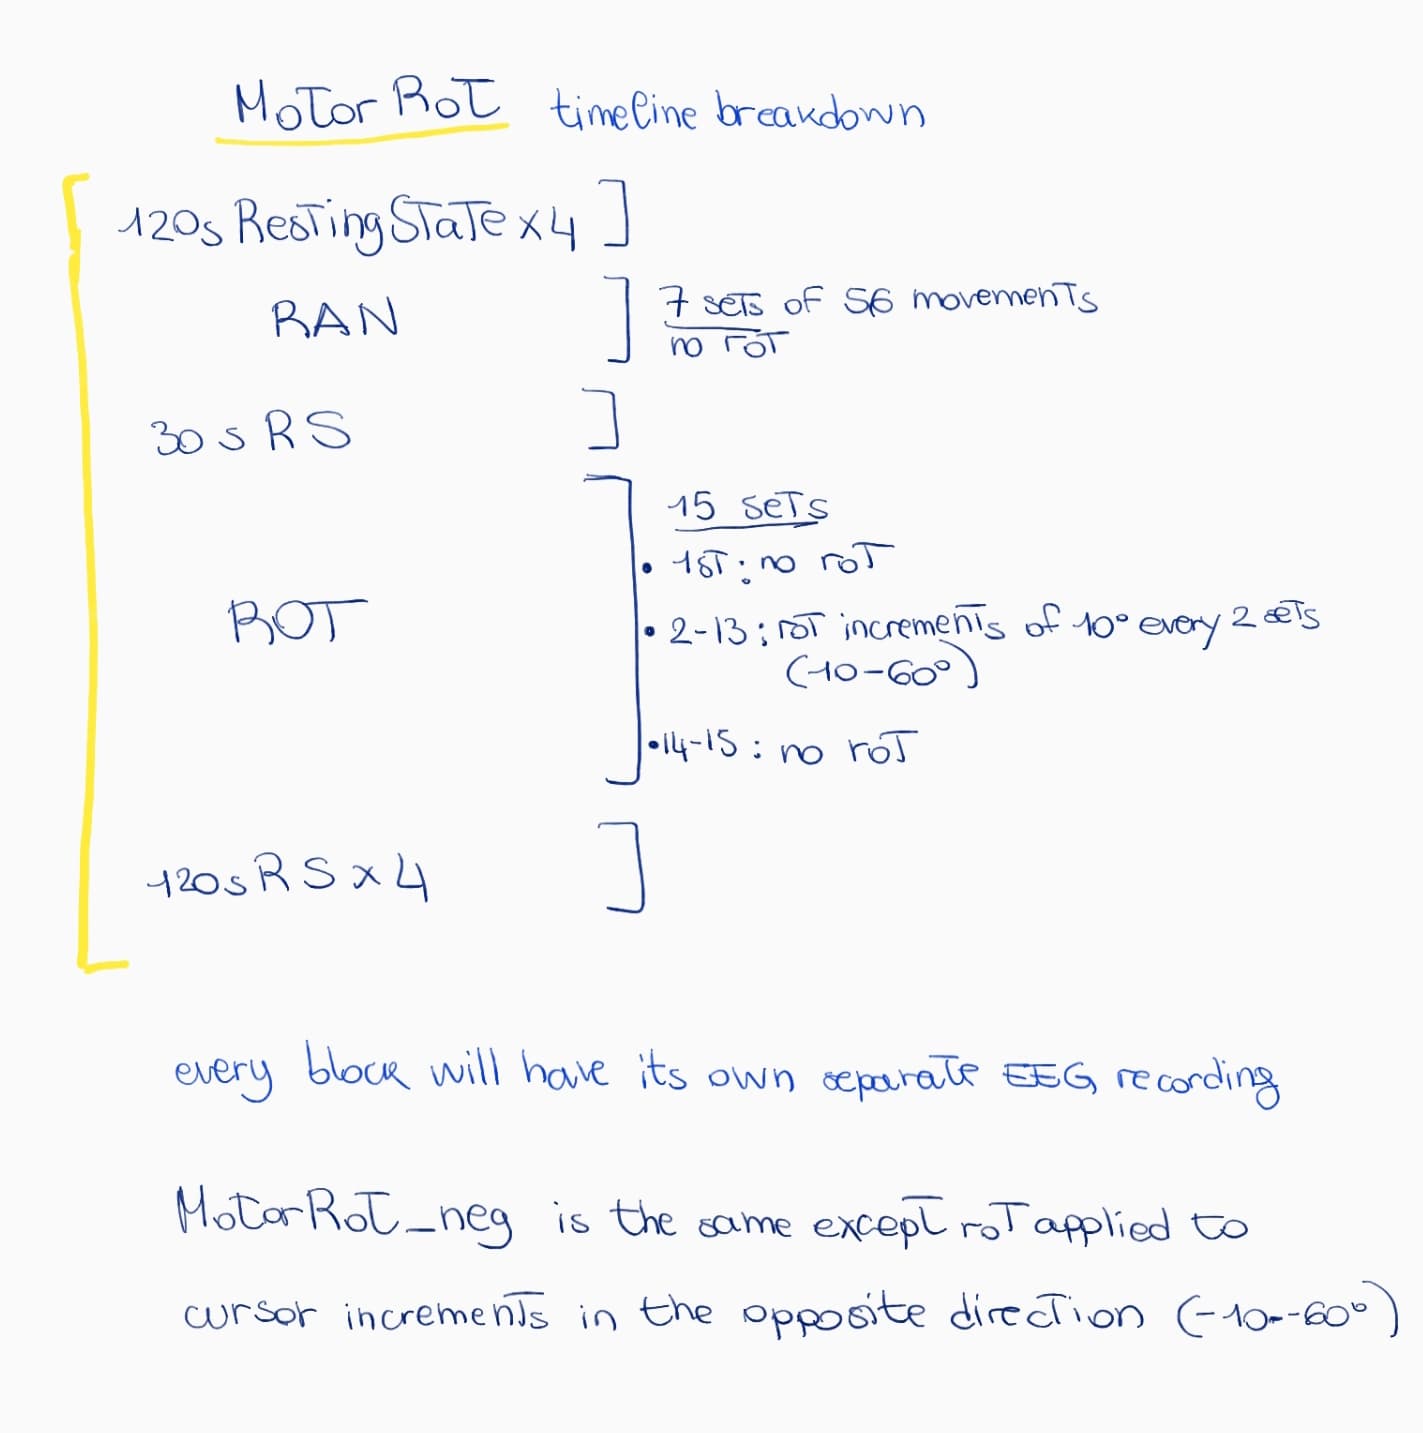 MoTor RoT timeline breakdown
120s ResTing STaTe x 4 ]
RAN ] 7 seTs of 56 movemenTs
no roT
30 s RS ]
15 seTs
• 1sT : no roT
ROT ] • 2-13 : roT incremenTs of 10° every 2 seTs
(10-60°)
• 14-15 : no roT
120s RS x 4 ]
every block will have its own separaTe EEG recording
MotorRoT_neg is the same excepT roT applied to
cursor incremenTs in the opposite direcTion (-10--60°)